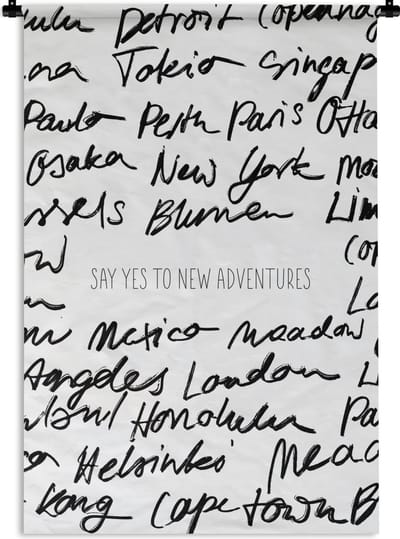 ulu Detroit Copenhag
ara Tokio Singap
Paulo Perth Paris Otta
Osaka New York Mo
ssels Blumen Lim
ow Cop
SAY YES TO NEW ADVENTURES
Lo
Mexico Meadow
Angeles London L
bul Honolulu Pa
a Helsinki Mead
Kong Cape Town B